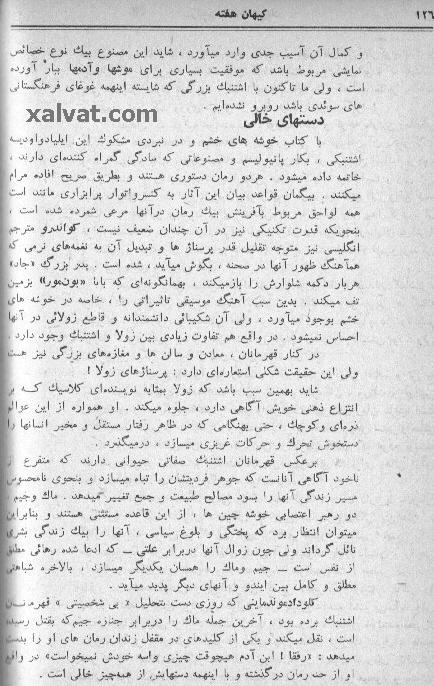 ۱۲۶ کیهان هفته
و کمال آن آسیب جدی وارد میآورد ، شاید این مصنوع بیک نوع خصائص
نمایشی مربوط باشد که موفقیت بسیاری برای موشها وآدمها ببار آورده
است ، ولی ما تاکنون با اشتنبک بزرگی که شایسته اینهمه غوغای فرهنگستانی
های سوئدی باشد روبرو نشده‌ایم .
xalvat.com
دستهای خالی
با کتاب خوشه های خشم و در نبردی مشکوک این ایلیادوادیسه
اشتنبکی ، بکار پانیولیسم و مصنوعاتی که سادگی گمراه کننده‌ای دارند ،
خاتمه داده میشود . هردو رمان دستوری هستند و بطریق صریح افاده مرام
میکنند . بیگمان قواعد بیان این آثار به کنسرواتوار پرابزاری مانند است
همه لواحق مربوط بآفرینش بیک رمان درآنها مرعی شمرده شده است ،
بنحویکه قدرت تکنیکی نیز در آن چندان ضعیف نیست ، کواندرو مترجم
انگلیسی نیز متوجه تقلیل قدر پرسناژ ها و تبدیل آن به نغمه‌های نرمی که
همآهنگ ظهور آنها در صحنه ، بگوش میآید ، شده است . پدر بزرگ «جاد»
هربار دکمه شلوارش را بازمیکند ، بهمانگونه‌ای که بابا «بون‌مور» بزمین
تف میکند . بدین سبب آهنگ موسیقی تاثیراتی را ، خاصه در خوشه های
خشم بوجود میآورد ، ولی آن شکیبائی دانشمندانه و قاطع زولائی در آنها
احساس نمیشود . در واقع هم تفاوت زیادی بین زولا و اشتنبک وجود دارد .
در کنار قهرمانان ، معادن و سالن ها و مغازه‌های بزرگی نیز هست
ولی این حقیقت شکلی استعاره‌ای دارد : پرسناژهای زولا !
شاید بهمین سبب باشد که زولا بمثابه نویسنده‌ای کلاسیک که بر
انتزاع ذهنی خویش آگاهی دارد ، جلوه میکند . او همواره از این عوالم
ذره‌ای وکوچک ، حتی بهنگامی که در ظاهر رفتار مستقل و مخیر انسانها را
دستخوش تحرک و حرکات غریزی میسازد ، درمیگذرد .
برعکس قهرمانان اشتنبک صفاتی حیوانی دارند که متفرع از
ناخود آگاهی آنانست که جوهر فردیتشان را تباه میسازد و بنحوی نامحسوس
مسیر زندگی آنها را بسود مصالح طبیعت و جمع تغییر میدهد . ماک وجیم ،
دو رهبر اعتصابی خوشه چین ها ، از این قاعده مستثنی هستند و بنابراین
میتوان انتظار برد که پختگی و بلوغ سیاسی ، آنها را بیک زندگی بشری
نائل گرداند ولی چون زوال آنها دربرابر علتی ــ که ادعا شده رهائی مطلق
از نفس است ــ جیم وماک را همسان یکدیگر میسازد ، بالاخره شباهتی
مطلق و کامل بین ایندو و آنهای دیگر پدید میآید .
کلودادموندماینی که روزی دست بتحلیل « بی شخصیتی » قهرمانان
اشتنبک برده بود ، آخرین جمله ماک را دربرابر جنازه جیم‌که بقتل رسیده
است ، نقل میکند و یکی از کلیدهای در مقفل زندان رمان های او را بدست
میدهد : «رفقا ! این آدم هیچوقت چیزی واسه خودش نمیخواست» در واقع
او از حد رمان درگذشته و با اینهمه دستهایش از همه‌چیز خالی است .